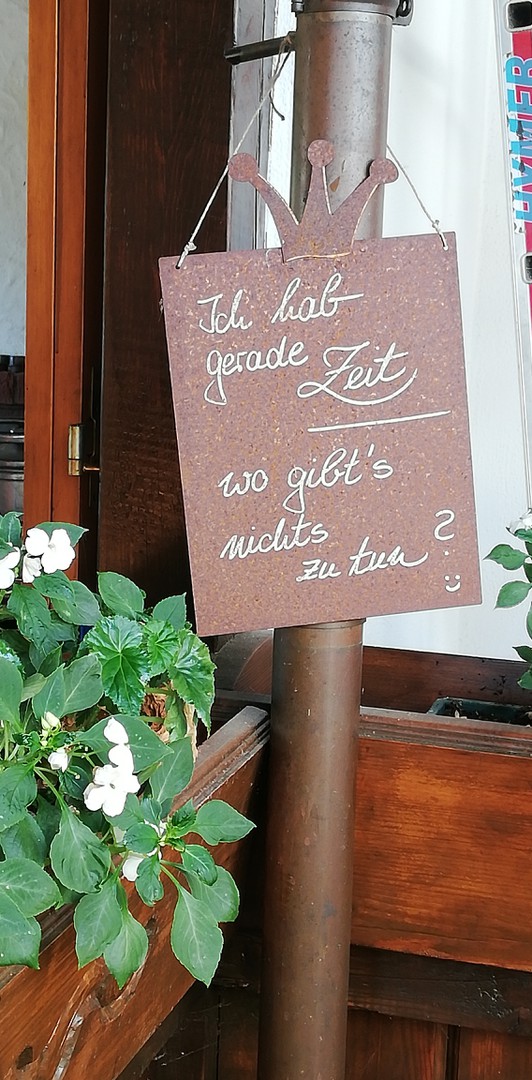 Ich hab
gerade Zeit
wo gibt's
nichts
zu tun ?
HYMER